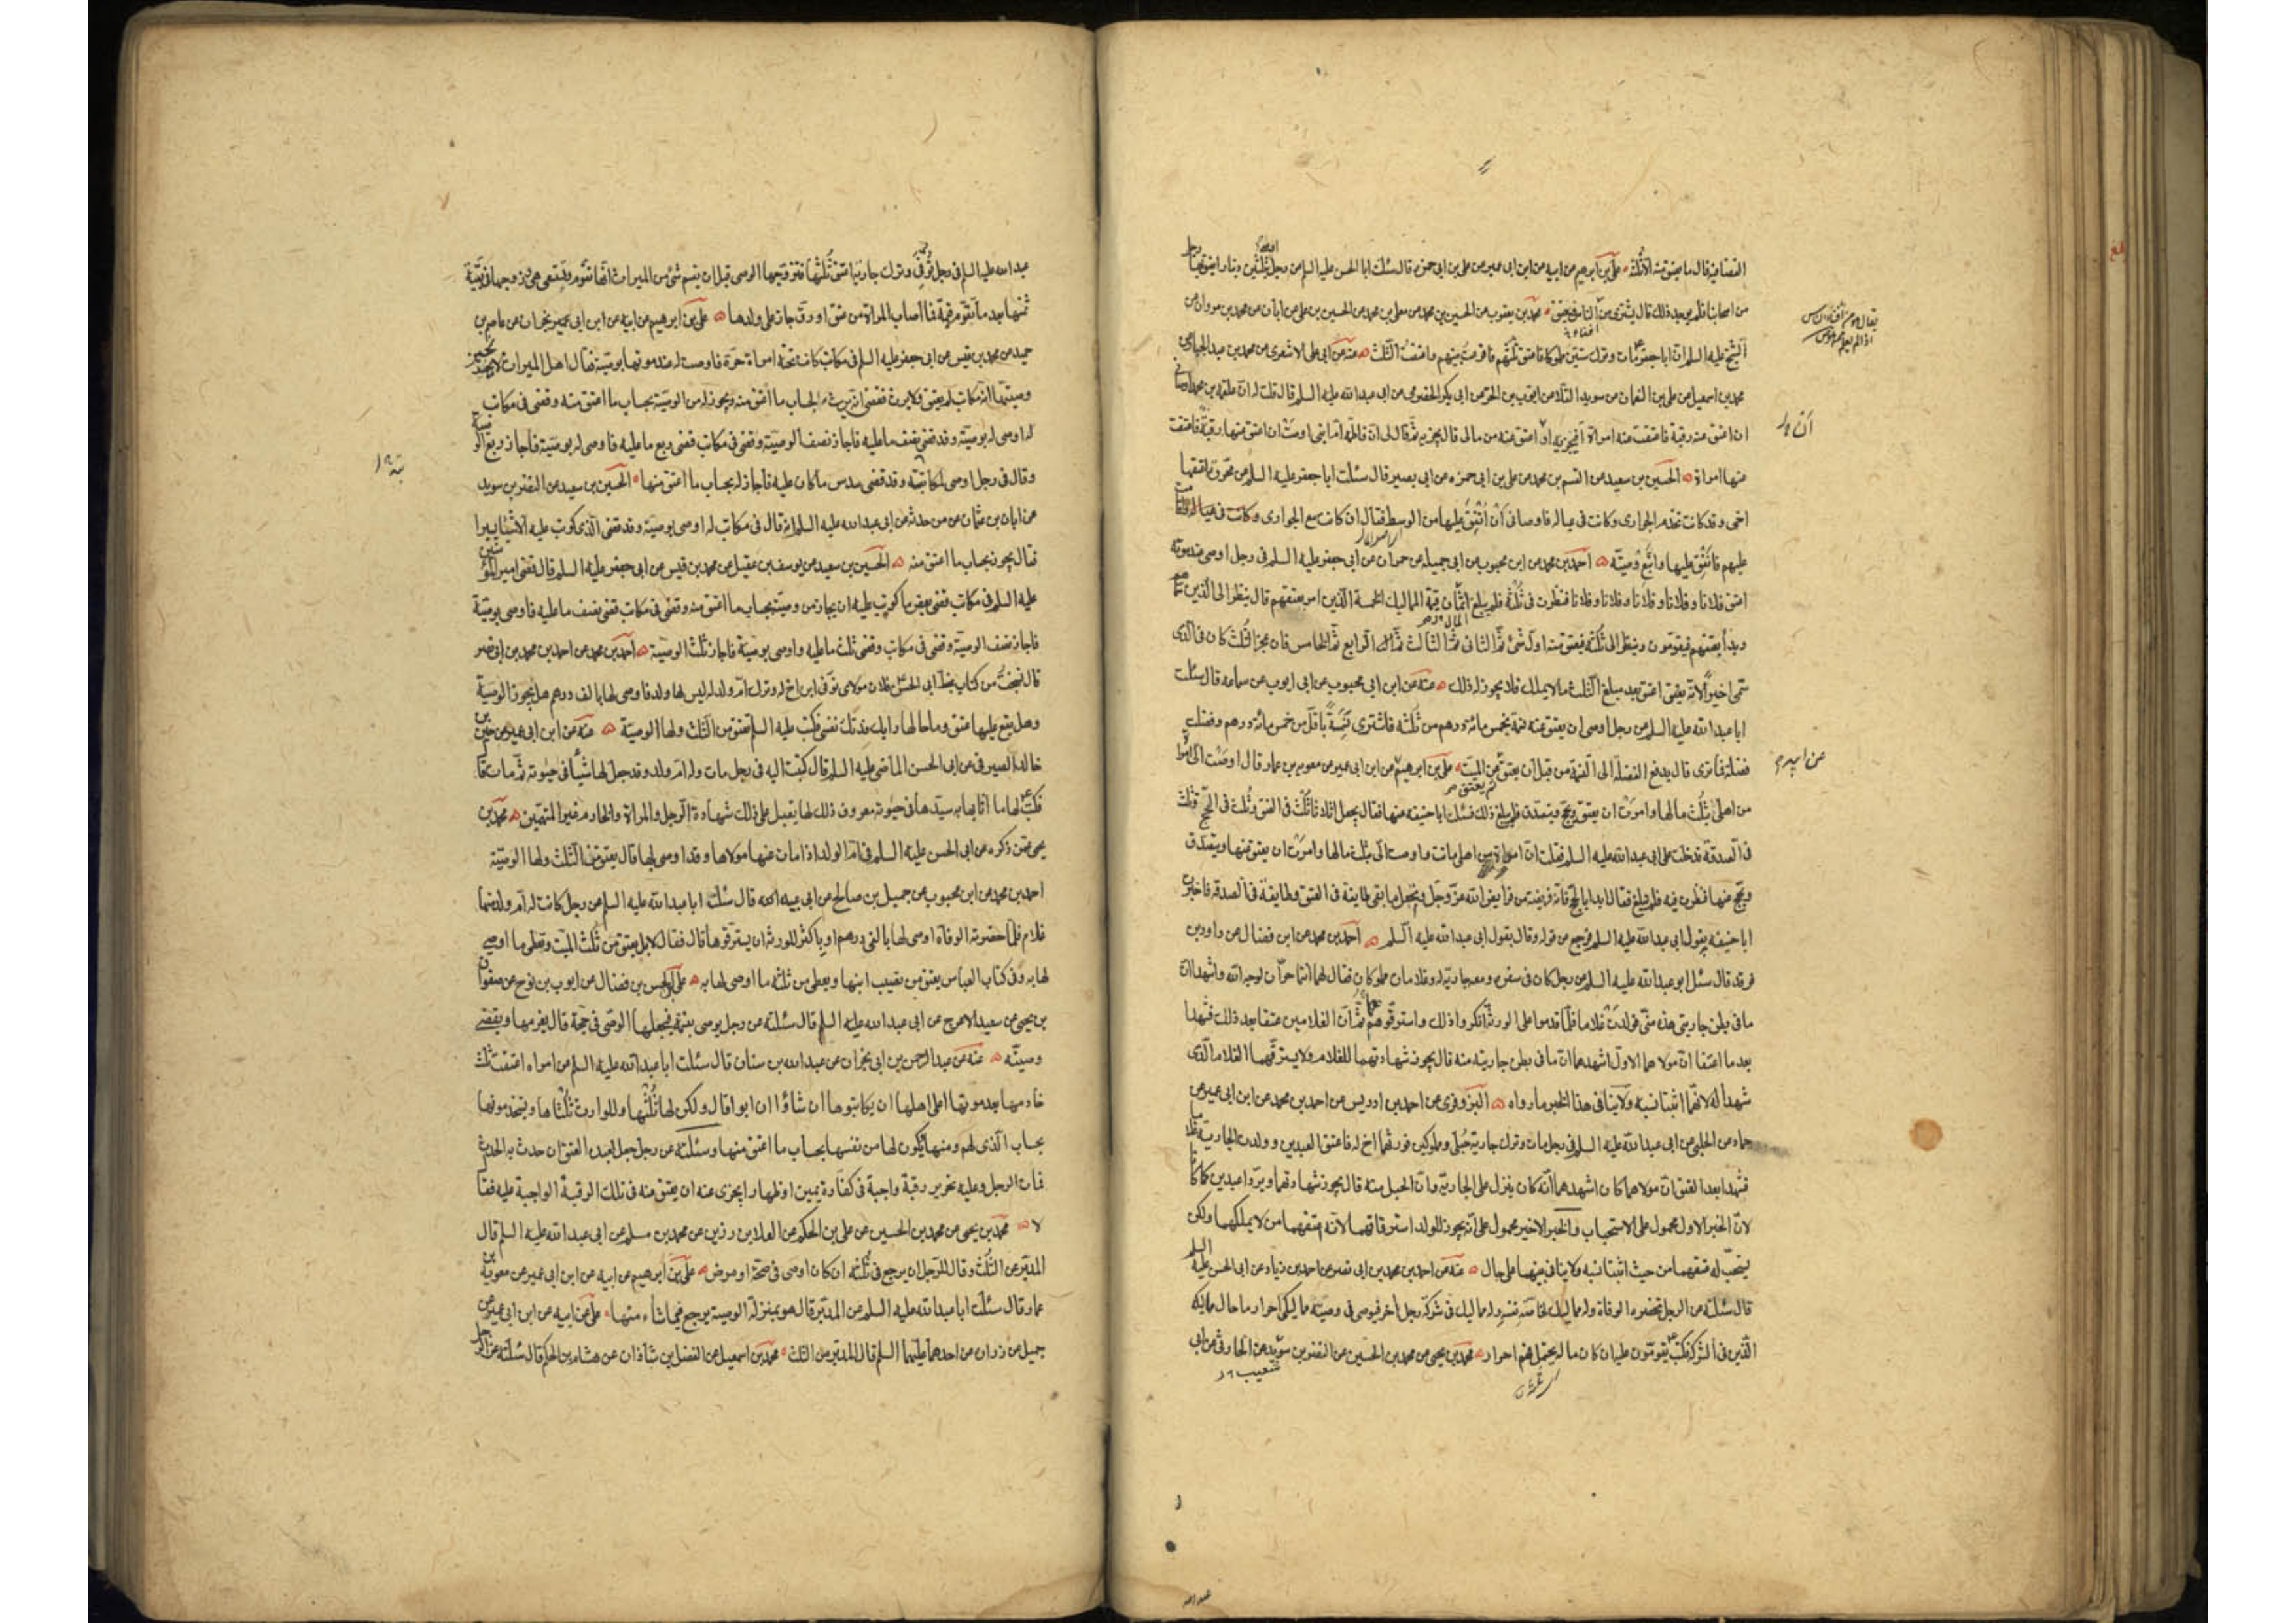 القضا فيه قال ما يعتق منه الا ثلثه علي بن ابرهيم عن ابيه عن ابن ابي عمير عن علي بن ابي حمزه قال سئلت ابا الحسن عليه السلم عن رجل بثلثين دينارا يعتق بها رجل
من اصحابنا فلم يوجد ذلك قال يشترى من الناس فيعتق محمد بن يعقوب عن الحسين بن محمد عن معلى بن محمد عن الحسين بن علي عن ابان عن محمد بن مروان عن
الشيخ عليه السلم ان ابا جعفر مات وترك ستين مملوكا فاعتق ثلثهم فاقرعت بينهم واعتقت الثلث عنه عن ابي علي الاشعري عن محمد بن عبد الجبار عن
محمد بن اسمعيل عن علي بن النعمان عن سويد القلا عن ايوب بن الحر عن ابي بكر الحضرمي عن ابي عبد الله عليه السلم قال قلت له ان علقمه بن محمد اوصاني
ان اعتق عنه رقبة فاعتقت عنه امراة افيجزيه او اعتق عنه من مالى قال يجزيه ثم قال لى ان فاطمة ام ابنى اوصت ان اعتق عنها رقبة فاعتقت
عنها امراة الحسين بن سعيد عن القسم بن محمد عن علي بن ابي حمزه عن ابي بصير قال سئلت ابا جعفر عليه السلم عن محررة اعتقها
اخى وقد كانت تخدم الجوارى وكانت فى عياله فاوصانى ان انفق عليها من الوسط فقال ان كانت مع الجوارى وكانت فى عيالهم
عليهم فانفق عليها واتبع وصيته احمد بن محمد عن ابن محبوب عن ابي جميله عن حمران عن ابي جعفر عليه السلم فى رجل اوصى عند موته
اعتق فلانا وفلانا وفلانا وفلانا وفلانا فنظرت فى ثلثه فلم يبلغ اثمان قيمة المماليك الخمسة الذين امر بعتقهم قال ينظر الى الذين سماهم
ويبدأ بعتقهم فيقومون وينظر الى ثلثه فيعتق منه اول شئ ثم الثانى ثم الثالث ثم الرابع ثم الخامس فان عجز الثلث كان فى الذى
سمى اخيرا لانه يعتق اعتق بعد مبلغ الثلث ما لا يملك فلا يجوز له ذلك عنه عن ابن ابي محبوب عن ابي ايوب عن سماعه قال سئلت
ابا عبد الله عليه السلم عن رجل اوصى ان يعتق عنه نسمة بخمس مائة درهم من ثلثه فاشترى نسمة باقل من خمس مائة درهم وفضلت
فضلة فما ترى قال يدفع الفضلة الى النسمة من قبل ان يعتق عن الميت علي بن ابرهيم عن ابن ابي عمير عن معويه بن عمار قال اوصت الى امراة
من اهلى بثلث مالها وامرت ان يعتق ويحج ويتصدق فلم يبلغ ذلك فسئلت ابا حنيفه عنها فقال يجعل اثلاثا ثلث فى العتق وثلث فى الحج وثلث
فى الصدقة فدخلت على ابى عبد الله عليه السلم فقلت ان امراة من اهلى ماتت واوصت الى بثلث مالها وامرت ان يعتق عنها ويتصدق
ويحج عنها فنظرت فيه فلم يبلغ فقال ابدا بالحج فانه فريضة من فرايض الله عز وجل ويجعل ما بقى طايفة فى العتق وطايفة فى الصدقه فاخبرت
ابا حنيفه بقول ابى عبد الله عليه السلم فرجع عن قوله وقال بقول ابى عبد الله عليه السلم احمد بن محمد عن ابن فضال عن داود بن
فرقد قال سئل ابو عبد الله عليه السلم عن رجل كان فى سفر ومعه جارية له وغلامان مملوكان فقال لهما انتما حران لوجه الله واشهدا ان
ما فى بطن جاريتى هذه منى فولدت غلاما فلما قدموا على الورثة انكروا ذلك واسترقوهم ثم ان الغلامين عتقا بعد ذلك فشهدا
بعد ما اعتقا ان مولاهما الاول اشهدهما ان ما فى بطن جاريته منه قال يجوز شهادتهما للغلام ولا يسترقهما الغلام الذى
شهدا له لانهما اثبتا نسبه ولا ينافى هذا الخبر ما رواه البزوفرى عن احمد بن ادريس عن احمد بن محمد عن ابن ابى عمير عن
حماد عن الحلبى عن ابى عبد الله عليه السلم فى رجل مات وترك جارية حبلى ومملوكين فورثهما اخ له فاعتق العبدين وولدت الجارية غلاما
فشهدا بعد العتق ان مولاهما كان اشهدهما انه كان ينزل على الجارية وان الحبل منه قال يجوز شهادتهما ويردا عبدين كما كانا
لان الخبر الاول محمول على الاستحباب والخبر الاخير محمول على انه يجوز للولد استرقاقهما لانه اعتقهما من لا يملكهما ولكن
يستحب له عتقهما من حيث اثبتا نسبه ولا ينافى بينهما على حال عنه عن احمد بن محمد بن ابى نصر عن احمد بن زياد عن ابى الحسن عليه السلم
قال سئلته عن الرجل تحضره الوفاة وله مماليك لخاصة نفسه وله مماليك فى شركة رجل اخر فيوصى فى وصيته مماليكى احرار ما حال مماليكه
الذين فى الشركة فكتب يقومون عليه ان كان ماله يحتمل فهم احرار محمد بن يحيى عن محمد بن الحسين عن النضر بن سويد عن الحارثى عن ابى
يقال هو من افناء الناس
اذا لم يعلم ممن هو
عن ابيه
عبد الله
عبد الله عليه السلم فى رجل توفى وترك جارية اعتق ثلثها فتزوجها الوصى قبل ان يقسم شئ من الميراث انها تقوم وتستسعى هى وزوجها فى بقية
ثمنها بعد ما تقوم قيمة فما اصاب المراة من عتق او رق جاز على ولدها علي بن ابرهيم عن ابيه عن ابن ابى نجران عن عاصم بن
حميد عن محمد بن قيس عن ابى جعفر عليه السلم فى مكاتب كانت تحته امراة حرة فاوصت له عند موتها بوصية فقال اهل الميراث لا يجيز
وصيتها انه مكاتب لم يعتق ولا يرث فقضى انه يرث بحساب ما اعتق منه ويجوز له من الوصية بحساب ما اعتق منه وقضى فى مكاتب
له اوصى له بوصية وقد قضى نصف ما عليه فاجاز نصف الوصية وقضى فى مكاتب قضى ربع ما عليه فاوصى له بوصية فاجاز ربع الوصية
وقال فى رجل اوصى لمكاتبته وقد قضت سدس ما كان عليه فاجاز له بحساب ما اعتق منها الحسين بن سعيد عن النضر بن سويد
عن ابان بن عثمان عن من حدثه عن ابى عبد الله عليه السلم انه قال فى مكاتب له اوصى بوصية وقد قضى الذى كوتب عليه الا شيئا يسيرا
فقال يجوز بحساب ما اعتق منه الحسين بن سعيد عن يوسف بن عقيل عن محمد بن قيس عن ابى جعفر عليه السلم قال قضى امير المؤمنين
عليه السلم فى مكاتب قضى بعض ما كوتب عليه ان يجاز من وصيته بحساب ما اعتق منه وقضى فى مكاتب قضى نصف ما عليه فاوصى بوصية
فاجاز نصف الوصية وقضى فى مكاتب وقضى ثلث ما عليه واوصى بوصية فاجاز ثلث الوصية احمد بن محمد عن احمد بن محمد بن ابى نصر
قال نسخت من كتاب بخط ابى الحسن فلان مولاى توفى ابن اخ له وترك ام ولد له ليس لها ولد فاوصى لها بالف درهم هل يجوز الوصية
وهل يقع عليها عتق وما حالها رايك فدتك نفسى فكتب عليه السلم تعتق من الثلث ولها الوصية عنه عن ابن ابى عمير عن حسين بن
خالد الصيرفى عن ابى الحسن الماضى عليه السلم قال كتبت اليه فى رجل مات وله ام ولد وقد جعل لها شيئا فى حيوته ثم مات قال
فكتب لها ما اثابها به سيدها فى حيوته معروف ذلك لها يقبل على ذلك شهادة الرجل والمراة والخادم غير المتهمين محمد بن
يحيى عمن ذكره عن ابى الحسن عليه السلم فى ام الولد اذا مات عنها مولاها وقد اوصى لها قال يعتق من الثلث ولها الوصية
احمد بن محمد عن ابن محبوب عن جميل بن صالح عن ابى عبيده قال سئلت ابا عبد الله عليه السلم عن رجل كانت له ام ولد منها
غلام فلما حضرته الوفاة اوصى لها بالفى درهم او باكثر للورثة ان يسترقوها قال فقال لا بل يعتق من ثلث الميت وتعطى ما اوصى
لها به وفى كتاب العباس يعتق من نصيب ابنها ويعطى من ثلثه ما اوصى لها به علي بن الحسن بن فضال عن ايوب بن نوح عن صفوان
بن يحيى عن سعيد الاعرج عن ابى عبد الله عليه السلم قال سئلته عن رجل يوصى بنسمة فيجعلها الوصى فى حجة قال يغرمها ويقضى
وصيته عنه عن عبد الرحمن بن ابى نجران عن عبد الله بن سنان قال سئلت ابا عبد الله عليه السلم عن امراه اعتقت ثلث
خادمها بعد موتها اعلى اهلها ان يكاتبوها ان شاؤا ان ابوا قال ولكن لها ثلثها وللوارث ثلثاها ويستخدمونها
بحساب الذى لهم ومنها يكون لها من نفسها بحساب ما اعتق منها وسئلته عن رجل جعل لعبده العتق ان حدث به الحدث
فمات الرجل وعليه تحرير رقبة واجبة فى كفارة يمين او ظهار ايجزى عنه ان يعتق عنه فى تلك الرقبة الواجبة عليه فقال
لا محمد بن يحيى عن محمد بن الحسين عن علي بن الحكم عن العلا بن رزين عن محمد بن مسلم عن ابى عبد الله عليه السلم قال
المدبر من الثلث وقال للرجل ان يرجع فى ثلثه ان كان اوصى فى صحة او مرض علي بن ابرهيم عن ابيه عن ابن ابى عمير عن معوية بن
عمار قال سئلت ابا عبد الله عليه السلم عن المدبر قال هو بمنزلة الوصية يرجع فيما شاء منها علي عن ابيه عن ابن ابى عمير عن
جميل عن زراره عن احدهما عليهما السلم قال المدبر من الثلث محمد بن اسمعيل عن الفضل بن شاذان عن هشام بن الحكم قال سئلته عن الرجل